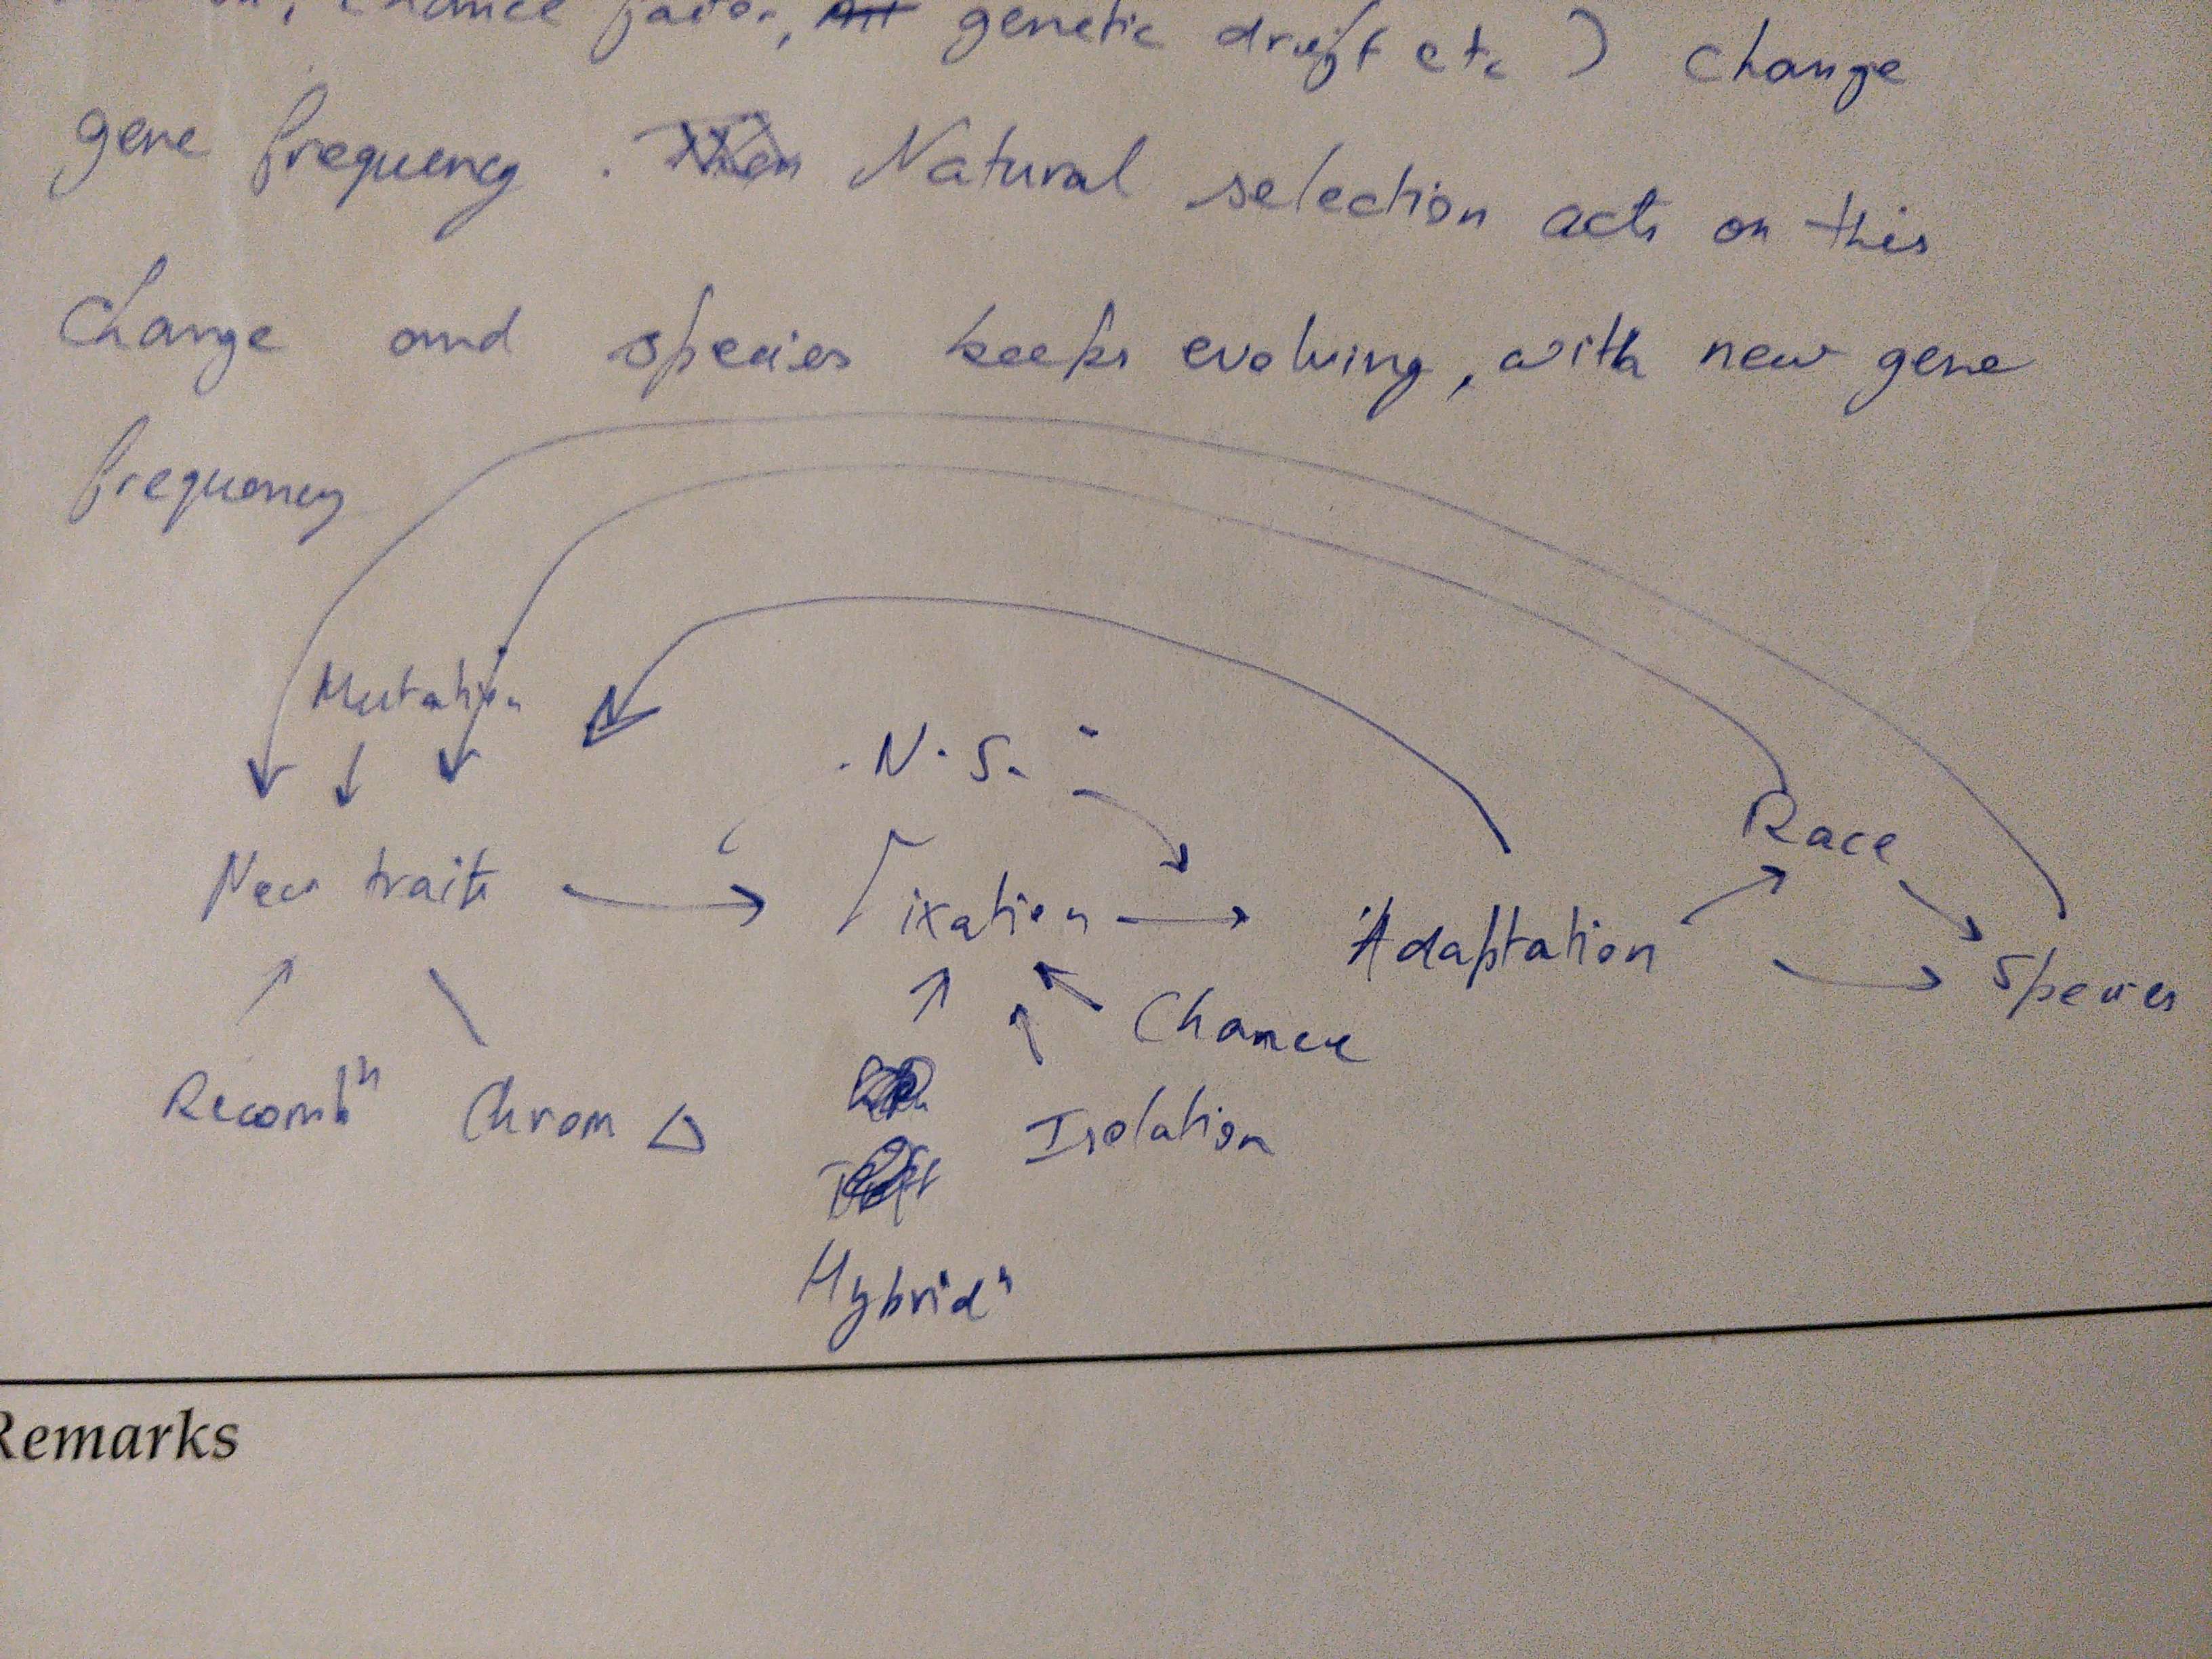 chance factor, genetic drift etc ) change
gene frequency . Natural selection acts on this
Change and species keeps evolving, with new gene
frequency
Mutation
N.S.
Race
New traits
Fixation
Adaptation
Species
Chance
Recombⁿ
Chrom Δ
Isolation
Hybridⁿ
Remarks